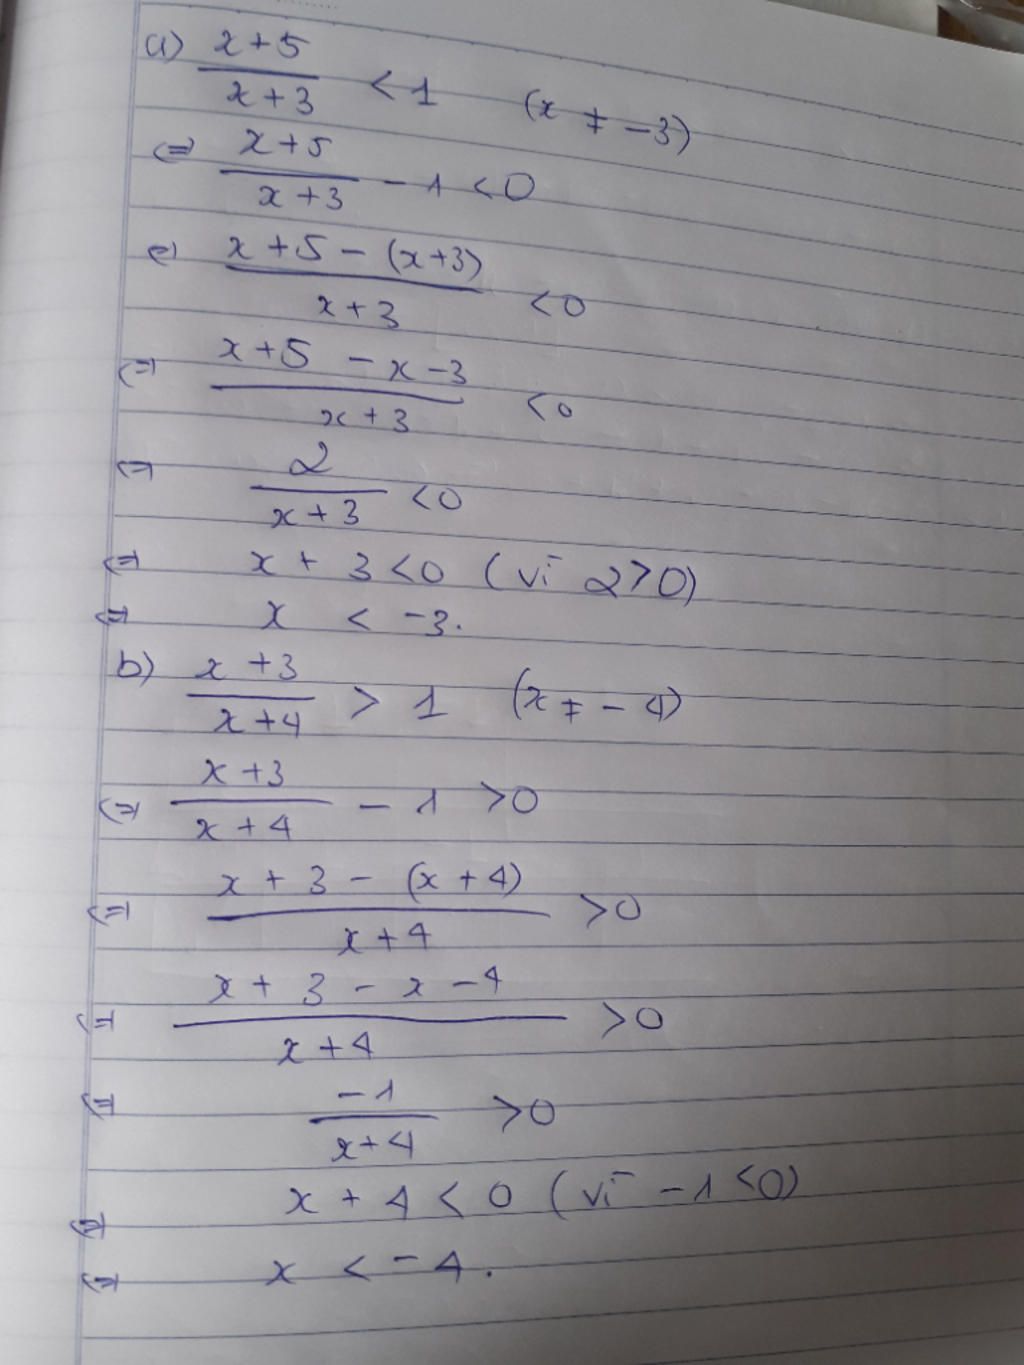 a) \frac{x+5}{x+3} < 1 (x ≠ -3)
⇔ \frac{x+5}{x+3} - 1 < 0
⇔ \frac{x+5-(x+3)}{x+3} < 0
⇔ \frac{x+5-x-3}{x+3} < 0
⇔ \frac{2}{x+3} < 0
⇔ x + 3 < 0 (vì 2 > 0)
⇔ x < -3.
b) \frac{x+3}{x+4} > 1 (x ≠ -4)
⇔ \frac{x+3}{x+4} - 1 > 0
⇔ \frac{x+3-(x+4)}{x+4} > 0
⇔ \frac{x+3-x-4}{x+4} > 0
⇔ \frac{-1}{x+4} > 0
⇔ x + 4 < 0 (vì -1 < 0)
⇔ x < -4.